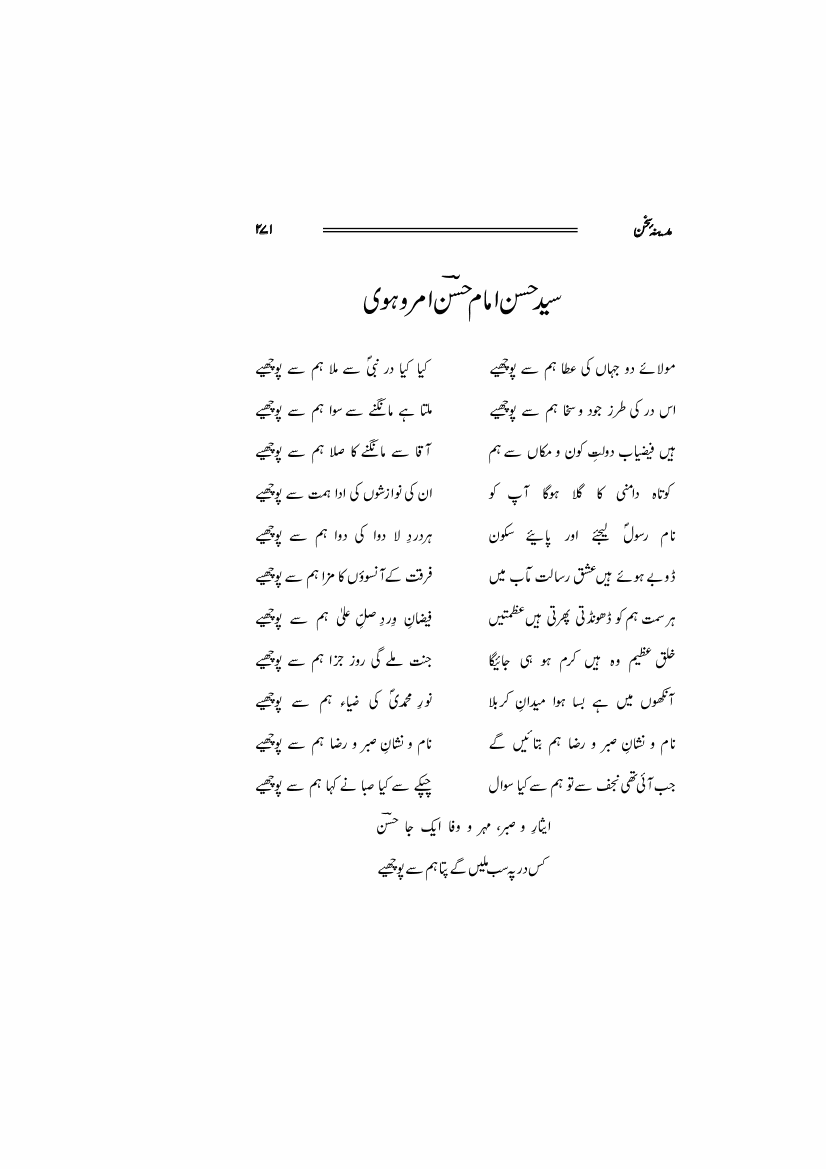 مدینۂ سخن ۲۷۱
سید حسن امام حسنؔ امروہوی
مولائے دو جہاں کی عطا ہم سے پوچھیے کیا کیا در نبیؐ سے ملا ہم سے پوچھیے
اس در کی طرز جود و سخا ہم سے پوچھیے ملتا ہے مانگنے سے سوا ہم سے پوچھیے
ہیں فیضیاب دولتِ کون و مکاں سے ہم آقا سے مانگنے کا صلا ہم سے پوچھیے
کوتاہ دامنی کا گلا ہوگا آپ کو ان کی نوازشوں کی ادا ہمت سے پوچھیے
نام رسولؐ لیجئے اور پایئے سکون ہردردِ لا دوا کی دوا ہم سے پوچھیے
ڈوبے ہوئے ہیں عشق رسالت مآب میں فرقت کے آنسوؤں کا مزا ہم سے پوچھیے
ہر سمت ہم کو ڈھونڈتی پھرتی ہیں عظمتیں فیضانِ وِردِ صلِّ علیٰ ہم سے پوچھیے
خلق عظیم وہ ہیں کرم ہو ہی جائیگا جنت ملے گی روز جزا ہم سے پوچھیے
آنکھوں میں ہے بسا ہوا میدانِ کربلا نورِ محمدیؐ کی ضیاء ہم سے پوچھیے
نام و نشانِ صبر و رضا ہم بتائیں گے نام و نشانِ صبر و رضا ہم سے پوچھیے
جب آئی تھی نجف سے تو ہم سے کیا سوال چپکے سے کیا صبا نے کہا ہم سے پوچھیے
ایثارِ و صبر، مہر و وفا ایک جا حسنؔ
کس در پہ سب ملیں گے پتا ہم سے پوچھیے